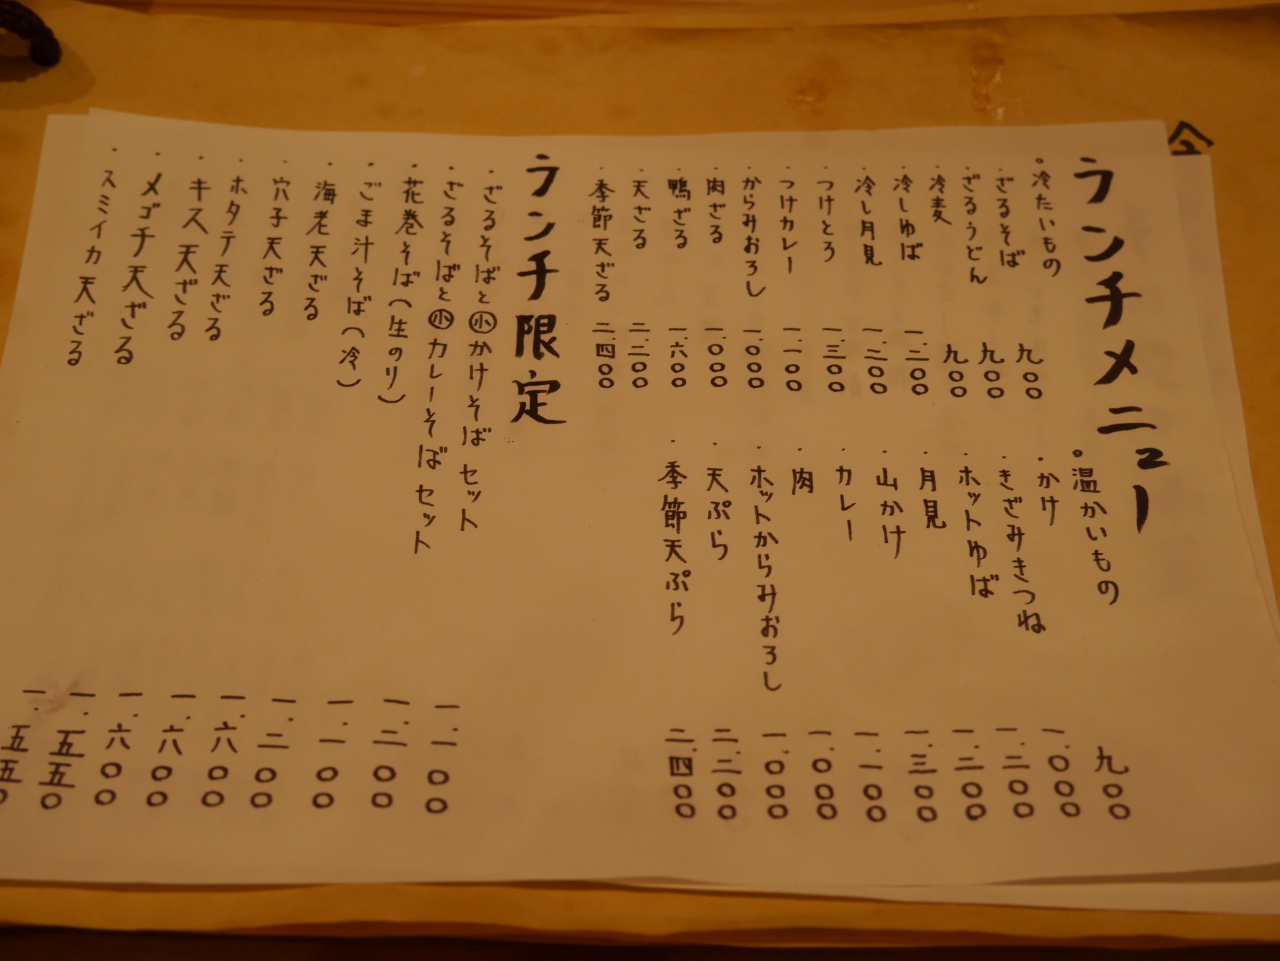 ランチメニュー
。冷たいもの
・ざるそば 九〇〇
・ざるうどん 九〇〇
・冷麦 九〇〇
・冷しゆば 一.二〇〇
・冷し月見 一.二〇〇
・つけとろ 一.三〇〇
・つけカレー 一.一〇〇
・からみおろし 一.〇〇〇
・肉ざる 一.〇〇〇
・鴨ざる 一.六〇〇
・天ざる 二.二〇〇
・季節天ざる 二.四〇〇
。温かいもの
・かけ 九〇〇
・きざみきつね 一.〇〇〇
・ホットゆば 一.二〇〇
・月見 一.二〇〇
・山かけ 一.三〇〇
・カレー 一.一〇〇
・肉 一.〇〇〇
・ホットからみおろし 一.〇〇〇
・天ぷら 二.二〇〇
・季節天ぷら 二.四〇〇
ランチ限定
・ざるそばと㊙かけそばセット 一.一〇〇
・ざるそばと小カレーそばセット 一.二〇〇
・花巻そば(生のり) 一.一〇〇
・ごま汁そば(冷) 一.二〇〇
・海老天ざる 一.六〇〇
・穴子天ざる 一.六〇〇
・ホタテ天ざる 一.六〇〇
・キス天ざる 一.五五〇
・メゴチ天ざる 一.五五〇
・スミイカ天ざる